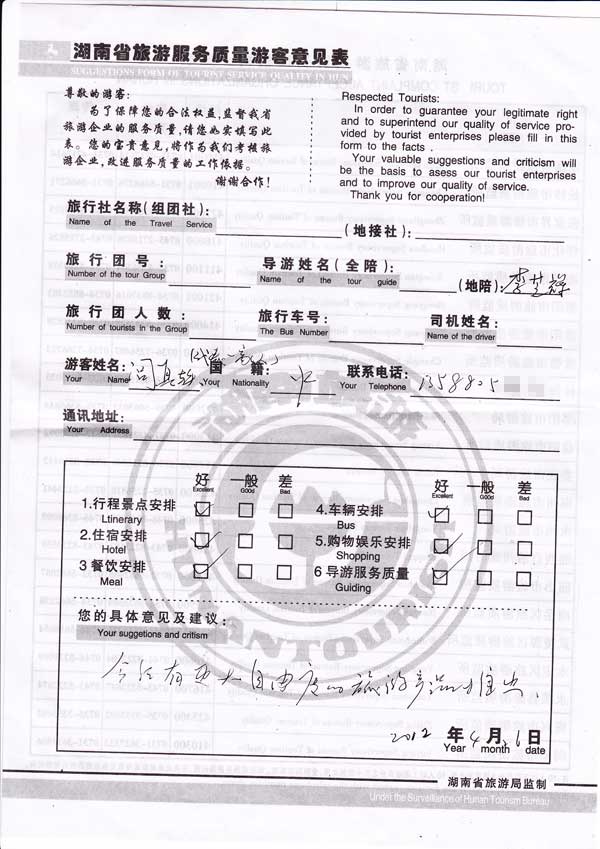 湖南省旅游服务质量游客意见表
SUGGESTIONS FORM OF TOURIST SERVICE QUALITY IN HUN
尊敬的游客:
为了保障您的合法权益,监督我省
旅游企业的服务质量,请您如实填写此
表。您的宝贵意见,将作为我们考核旅
游企业,改进服务质量的工作依据。
谢谢合作!
Respected Tourists:
In order to guarantee your legitimate right
and to superintend our quality of service pro-
vided by tourist enterprises please fill in this
form to the facts .
Your valuable suggestions and criticism will
be the basis to asess our tourist enterprises
and to improve our quality of service.
Thank you for cooperation!
旅行社名称(组团社): (地接社):
Name of the Travel Service
旅行团号: 导游姓名(全陪): (地陪): 李芝祥
Number of the tour Group Name of the tour guide
旅行团人数: 旅行车号: 司机姓名:
Number of tourists in the Group The Bus Number Name of the driver
游客姓名: 国籍: 中 联系电话: 1358805
Your Name Your Nationality Your Telephone
通讯地址:
Your Address
好 一般 差 好 一般 差
Excellent Good Bad Excellent Good Bad
1.行程景点安排 4.车辆安排
Ltinerary Bus
2.住宿安排 5.购物娱乐安排
Hotel Shopping
3 餐饮安排 6 导游服务质量
Meal Guiding
您的具体意见及建议:
Your suggetions and critism
今后有更大自由度的旅游产品推出.
2012 年 4 月 6 日
Year month date
湖南省旅游局监制
Under the Surveillance of Hunan Tourism Bureau
HUNANTOURISM